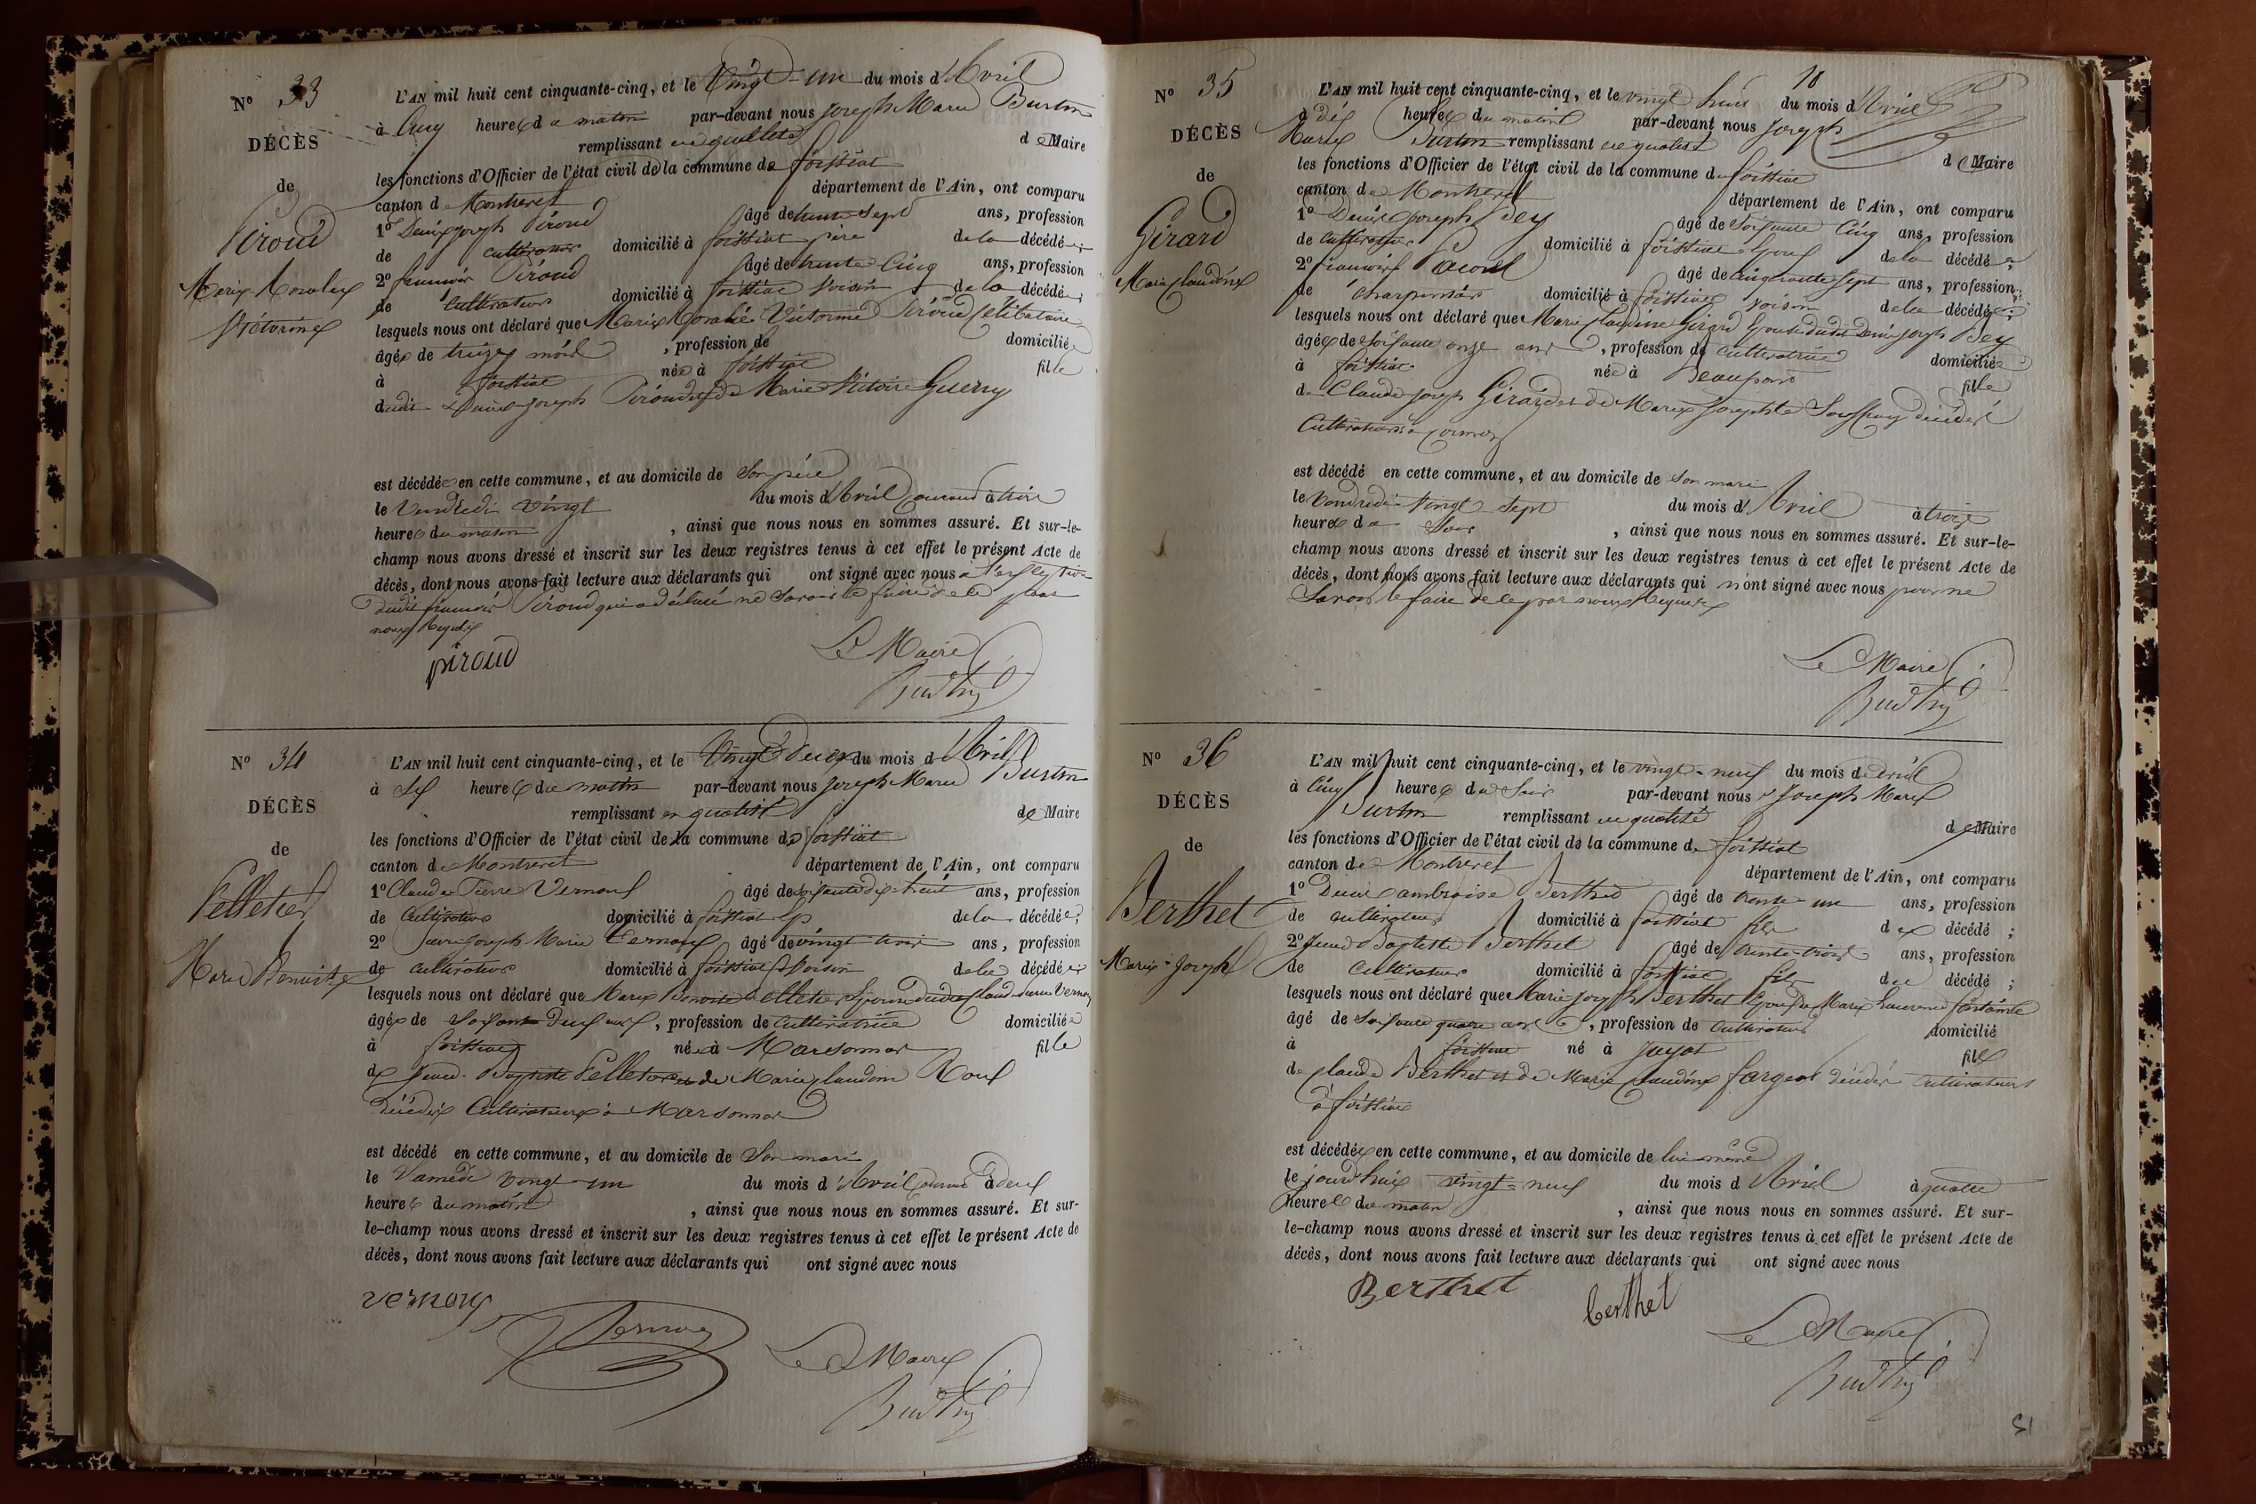 N° 33
DÉCÈS
de
Piroud
Marie Rosalie
Victorine
L'AN mil huit cent cinquante-cinq, et le Vingt-un du mois d'Avril
à Cinq heures du matin par-devant nous Joseph Marie Burtin
remplissant en qualité de Maire
les fonctions d'Officier de l'état civil de la commune de foissiat
canton de Montrevel département de l'Ain, ont comparu
1° Denis joseph Piroud âgé de trente sept ans, profession
de cultivateur domicilié à foissiat père de la décédée;
2° francois Piroud âgé de trente Cinq ans, profession
de Cultivateur domicilié à foissiat Voisin de la décédée;
lesquels nous ont déclaré que Marie Rosalie Victorine Piroud Célibataire
âgée de treize mois, profession de domiciliée
à foissiat née à foissiat fille
dudit Denis joseph Piroud et de Marie Victoire Guerry
est décédée en cette commune, et au domicile de Son père
le Vendredi vingt du mois d'Avril Courant à trois
heures du matin, ainsi que nous nous en sommes assuré. Et sur-le-
champ nous avons dressé et inscrit sur les deux registres tenus à cet effet le présent Acte de
décès, dont nous avons fait lecture aux déclarants qui ont signé avec nous à l'exception
dudit francois Piroud qui a déclaré ne Savoir le faire de ce par
nous Requis
piroud
Le Maire
Burtin
N° 34
DÉCÈS
de
Pelletier
Marie Benoite
L'AN mil huit cent cinquante-cinq, et le Vingt Deux du mois d'Avril
à Six heures du matin par-devant nous Joseph Marie Burtin
remplissant en qualité de Maire
les fonctions d'Officier de l'état civil de la commune de foissiat
canton de Montrevel département de l'Ain, ont comparu
1° Claude Pierre Vernoux âgé de soixante dix-huit ans, profession
de Cultivateur domicilié à foissiat de la décédée;
2° joseph Marie Vernoux âgé de vingt trois ans, profession
de cultivateur domicilié à foissiat Voisin de la décédée;
lesquels nous ont déclaré que Marie Benoite Pelletier Epouse dudit Claude Pierre Vernoux
âgée de Soixante deux ans, profession de Cultivatrice domiciliée
à foissiat née à Marsonnas fille
de jean Baptiste Pelletier et de Marie Claudine Roux
décédés Cultivateurs à Marsonnas
est décédé en cette commune, et au domicile de Son mari
le Samedi vingt-un du mois d'Avril Courant à deux
heures du matin, ainsi que nous nous en sommes assuré. Et sur-
le-champ nous avons dressé et inscrit sur les deux registres tenus à cet effet le présent Acte de
décès, dont nous avons fait lecture aux déclarants qui ont signé avec nous
vernoux
Vernoux
Le Maire
Burtin
10
N° 35
DÉCÈS
de
Girard
Marie Claudine
L'AN mil huit cent cinquante-cinq, et le vingt huit du mois d'Avril
à dix heures du matin par-devant nous Joseph
Marie Burtin remplissant en qualité de Maire
les fonctions d'Officier de l'état civil de la commune de foissiat
canton de Montrevel département de l'Ain, ont comparu
1° Denis joseph Bey âgé de Soixante Cinq ans, profession
de Cultivateur domicilié à foissiat Epoux de la décédée;
2° francois âgé de Cinquante sept ans, profession
de Charpentier domicilié à foissiat voisin de la décédée;
lesquels nous ont déclaré que Marie Claudine Girard Epouse dudit Denis joseph Bey
âgée de soixante onze ans, profession de Cultivatrice domiciliée
à foissiat née à Beaupont fille
de Claude joseph Girard et de Marie Josephte décédés
Cultivateurs à Cormoz
est décédé en cette commune, et au domicile de Son mari
le Vendredi Vingt Sept du mois d'Avril à trois
heures du Soir, ainsi que nous nous en sommes assuré. Et sur-le-
champ nous avons dressé et inscrit sur les deux registres tenus à cet effet le présent Acte de
décès, dont nous avons fait lecture aux déclarants qui n'ont signé avec nous pour ne
Savoir le faire de ce par nous Requis
Le Maire
Burtin
N° 36
DÉCÈS
de
Berthet
Marie-Joseph
L'AN mil huit cent cinquante-cinq, et le vingt-neuf du mois d'Avril
à Cinq heures du Soir par-devant nous Joseph Marie
Burtin remplissant en qualité de Maire
les fonctions d'Officier de l'état civil de la commune de foissiat
canton de Montrevel département de l'Ain, ont comparu
1° Denis ambroise Berthet âgé de trente-un ans, profession
de cultivateur domicilié à foissiat fils du décédé;
2° Jean Baptiste Berthet âgé de trente-trois ans, profession
de Cultivateur domicilié à foissiat fils du décédé;
lesquels nous ont déclaré que Marie joseph Berthet Epoux de Marie Laurence
âgé de Soixante quatre ans, profession de Cultivateur domicilié
à foissiat né à Jayat fils
de Claude Berthet et de Marie Claudine fargeot décédés Cultivateurs
à foissiat
est décédé en cette commune, et au domicile de lui même
le jourd'hui vingt-neuf du mois d'Avril à quatre
heures du matin, ainsi que nous nous en sommes assuré. Et sur-
le-champ nous avons dressé et inscrit sur les deux registres tenus à cet effet le présent Acte de
décès, dont nous avons fait lecture aux déclarants qui ont signé avec nous
Berthet
berthet
Le Maire
Burtin